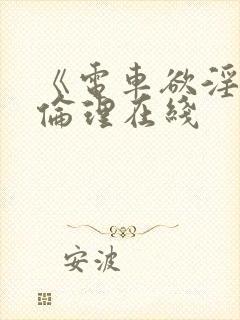 《電車欲淫
倫理在綫
安波